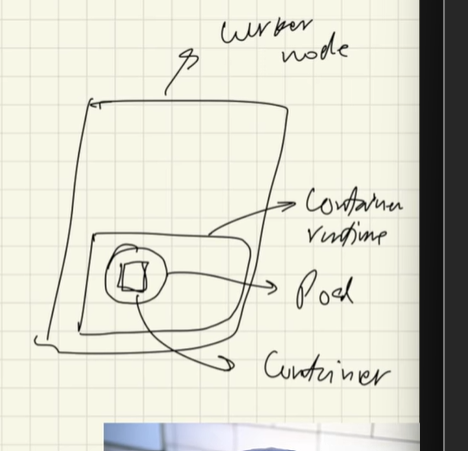 worker
node
Container
runtime
Pod
Container